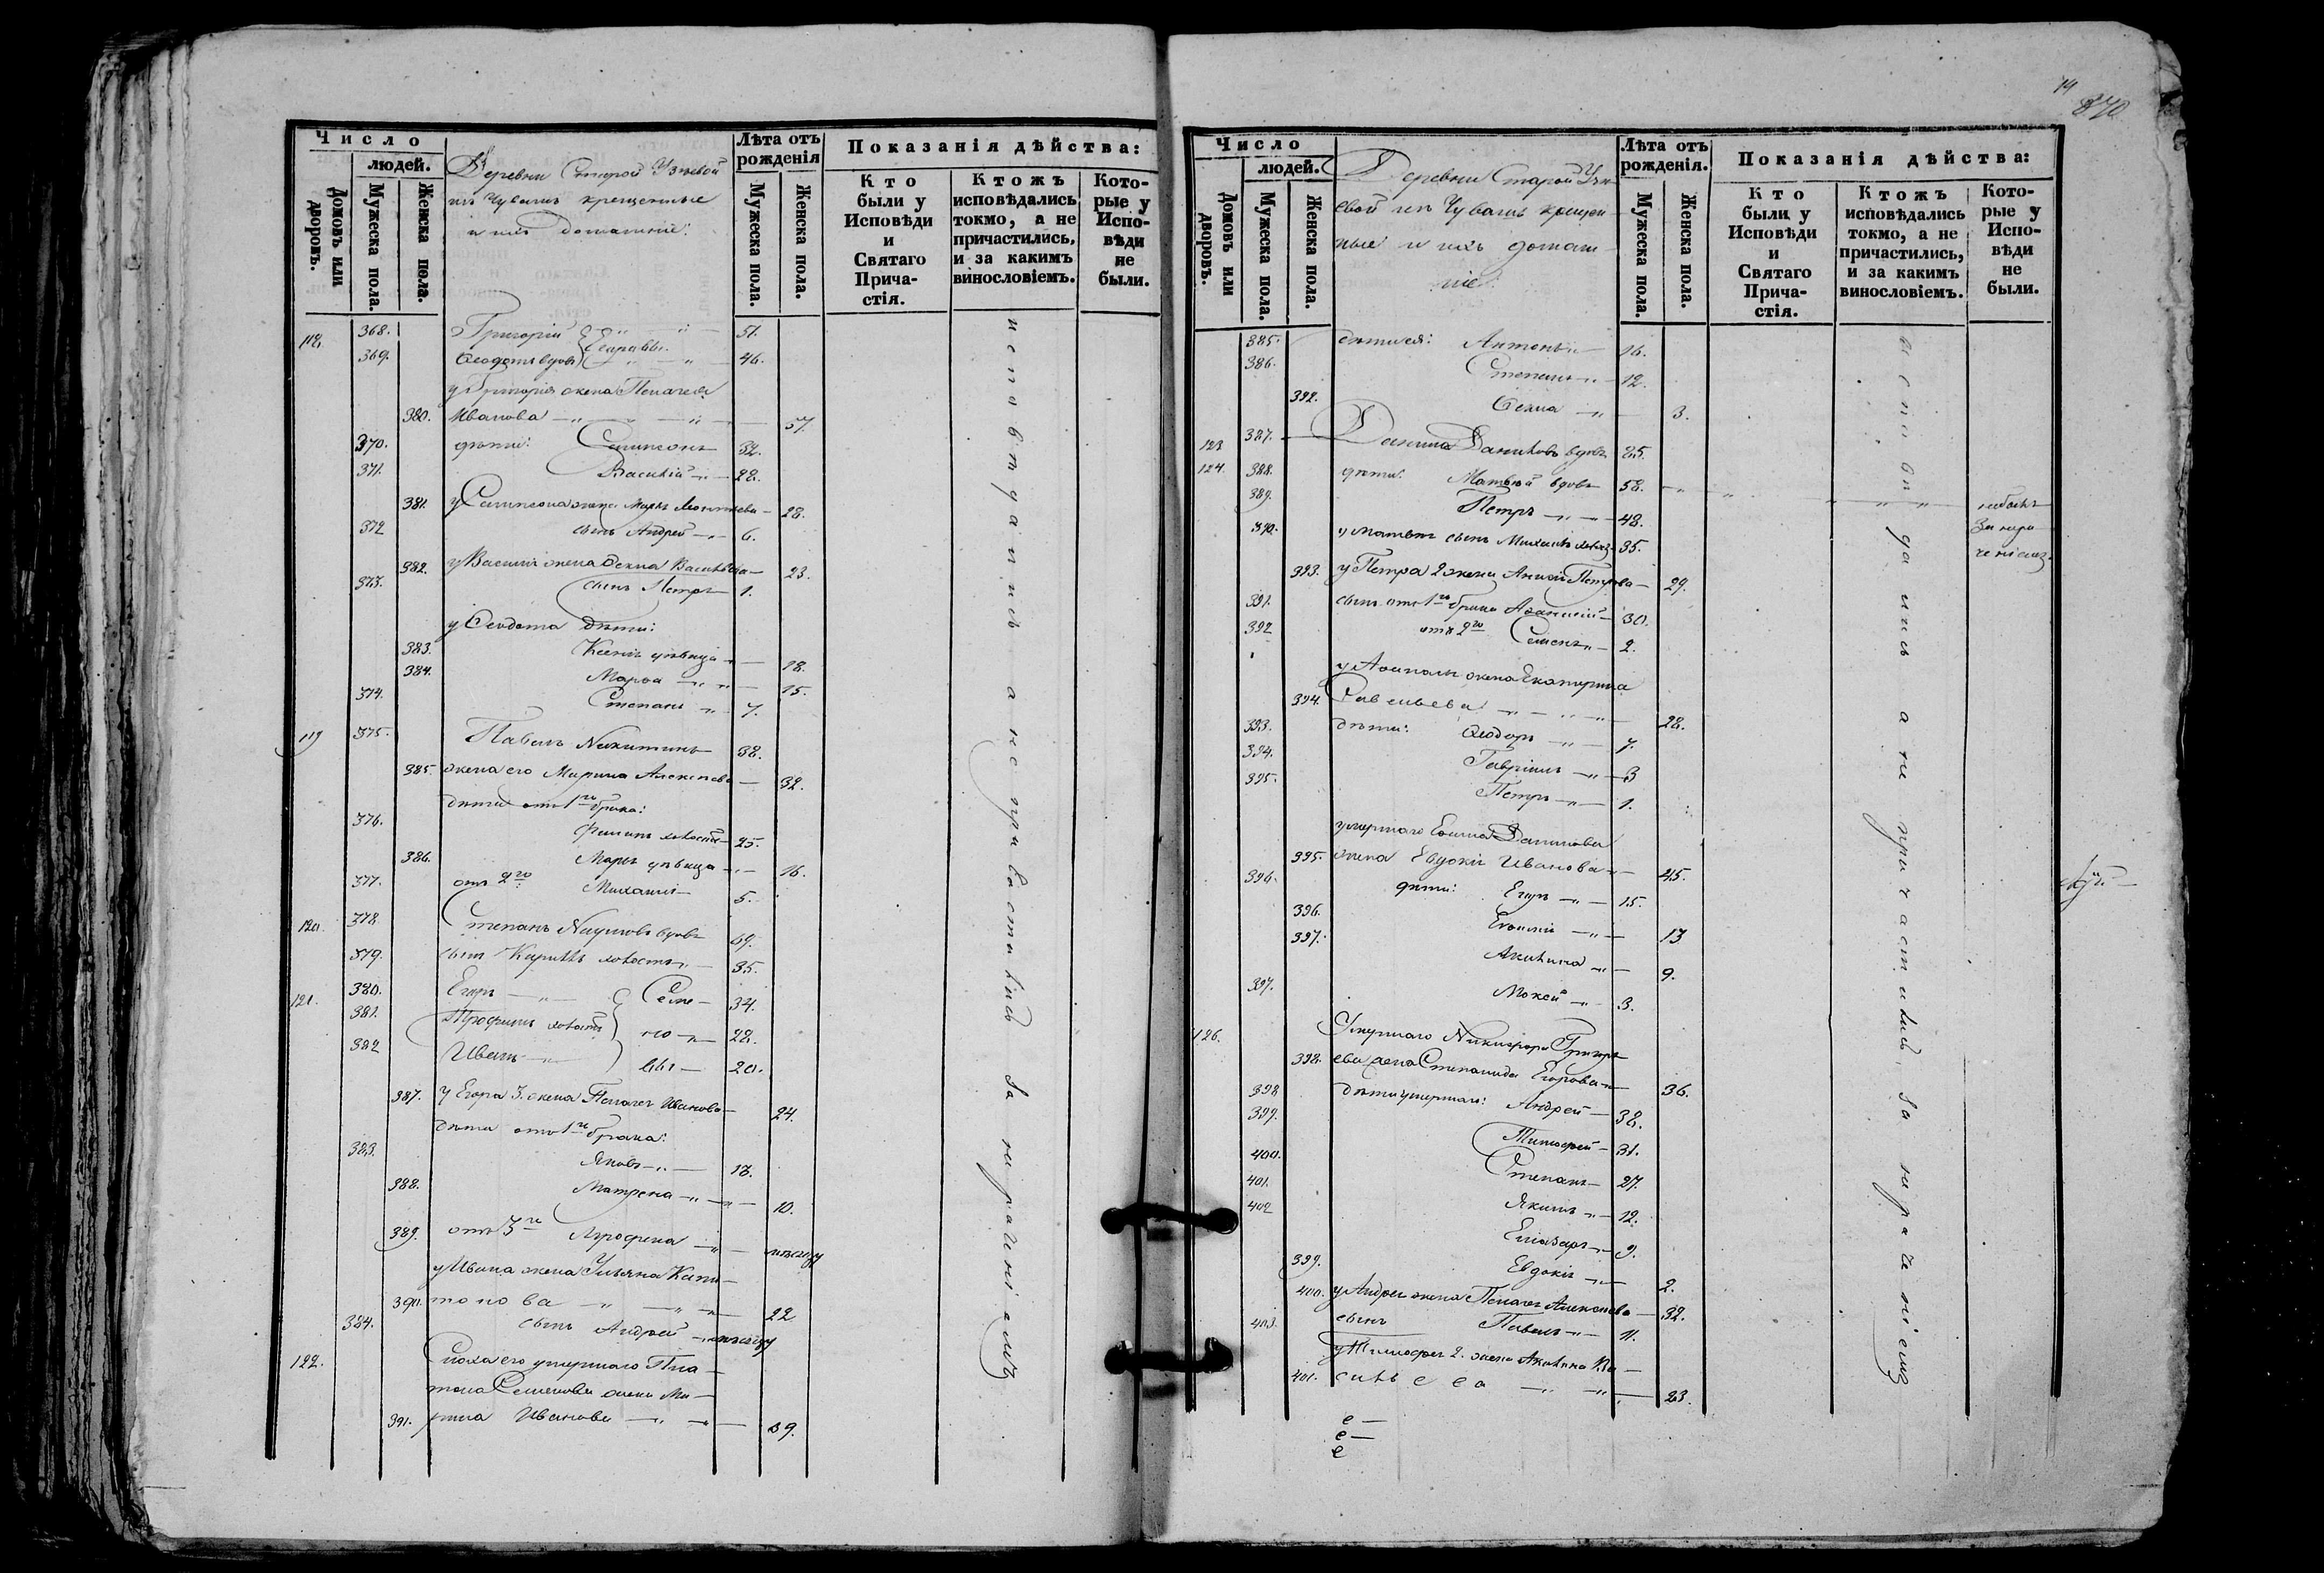 Число
людей.
Домовъ или дворовъ.
Мужеска пола.
Женска пола.
Деревни Старой Узѣевой
изъ Чувашъ крещенные
и ихъ домашніе:
Лѣта отъ рожденія
Мужеска пола.
Женска пола.
Показанія дѣйства:
Кто были у Исповѣди и Святаго Прича-стія.
Ктожъ исповѣдались токмо, а не причастились, и за какимъ винословіемъ.
Кото-рые у Испо-вѣди не были.
118. 368. Григорій 51.
369. Ѳеодотъ вдовъ 46.
у Григорія жена Пелагея
380. Иванова 57.
370. дѣти: Сампсонъ 32.
371. Василій 28.
381. у Сампсона жена Марья 28.
372 сынъ Андрей 6.
382. у Василія жена Ѳекла Васильева 23.
373. сынъ Петръ 1.
у Ѳеодота дѣти:
383. Ксенія дѣвица 18.
384. Марѳа 15.
374. Степанъ 7.
119 375. Павелъ Никитинъ 38.
385. жена его Марина Алексѣева 32.
дѣти отъ 1го брака:
376. Филипъ холостъ 25.
386. Марья дѣвица 16.
377. отъ 2го Михаилъ 5.
120. 378 Степанъ Наумовъ вдовъ 69.
379. сынъ Кирилъ холостъ 35.
121. 380. Егоръ Семе- 34.
381. Трофимъ холостъ но 28.
382 Иванъ вы 20.
387. у Егора 3. жена Пелагея Иванова 24.
дѣти отъ 1го брака:
383. Яковъ 18.
388. Матрена 10.
389. отъ 3го
у Ивана жена Ульяна Капи-
390. тонова 22
384. сынъ Андрей
122. Сноха его умершаго Пла-
тона Семенова жена Ма-
391. рина Иванова 39.
исповѣдались а не пріобщились за нераченіемъ
14
870
Число
людей.
Домовъ или дворовъ.
Мужеска пола.
Женска пола.
Деревни Старой Узѣ-
евой изъ Чувашъ крещен-
ные и ихъ домаш-
ніе:
Лѣта отъ рожденія.
Мужеска пола.
Женска пола.
Показанія дѣйства:
Кто были у Исповѣди и Святаго Прича-стія.
Ктожъ исповѣдались токмо, а не причастились, и за какимъ винословіемъ.
Кото-рые у Испо-вѣди не были.
385. Антонъ 16.
386. Степанъ 12.
392. Ѳекла 3.
123 387. Данила Даниловъ вдовъ 85.
124. 388. дѣти: Матвей вдовъ 58.
небылъ
389. Петръ 48.
за нера
390. у Матвѣя сынъ Михаилъ холост. 35.
ченіемъ.
393. у Петра 2 жена Анна Петрова 29.
391. сынъ отъ 1го брака Аѳанасій 30.
392 отъ 2го Семенъ 2.
жена Екатерина
394. Савельева 28.
393. дѣти: Ѳеодоръ 7.
394. Гавріилъ 3
395. Петръ 1.
умершаго Данилова
395. жена Евдокія Иванова 45.
396. дѣти: Егоръ 15.
396. Евѳимія 13
397. Акилина 9.
397. Мокей 3.
126. Умершаго Никифора Григорь-
398. ева жена Степанида Егорова 36.
398 дѣти умершаго: Андрей 38.
399. Тимофей 31.
400. Степанъ 27.
401. Якимъ 12.
402 Еліазаръ 9.
399. Евдокія 2.
400. у Андрея жена Пелагея Алексѣева 32.
403. сынъ Павелъ 11.
у Тимофея 2. жена Акилина Ва-
401. сильева 23.
исповѣдались а не причастились, за нераченіемъ